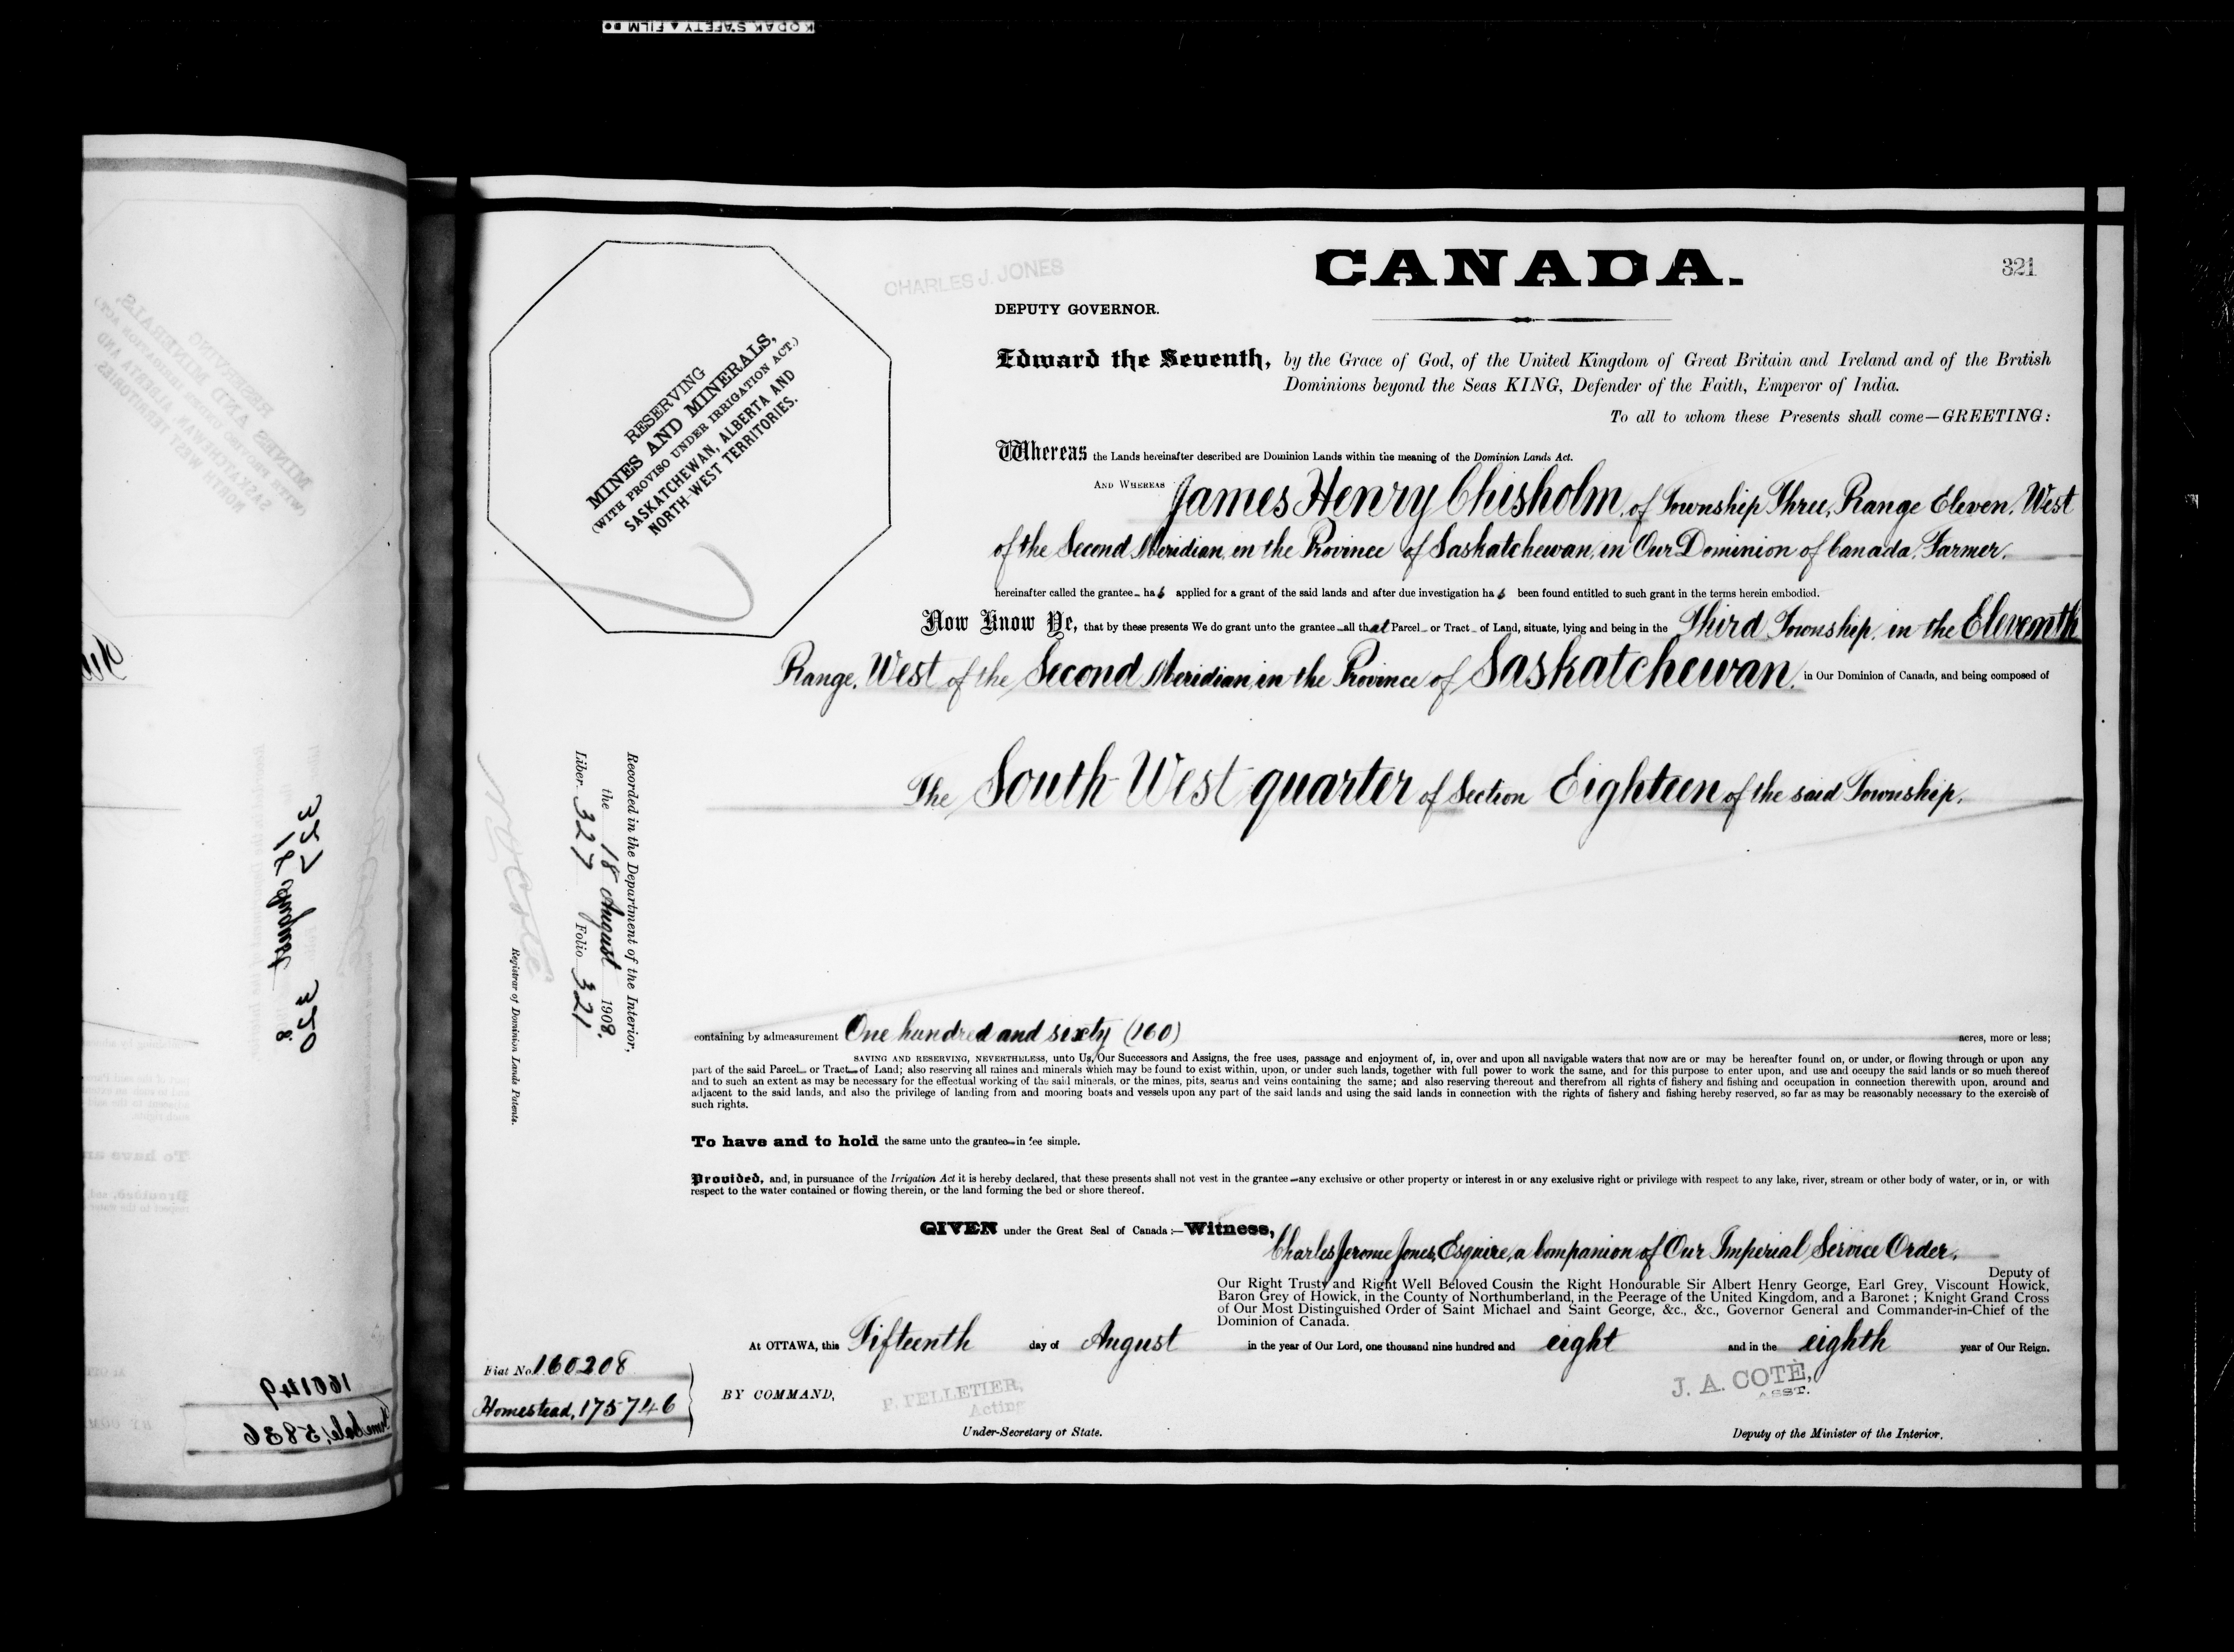 KODAK SAFETY ▲ FILM
CANADA.
321
CHARLES J. JONES
DEPUTY GOVERNOR.
RESERVING
MINES AND MINERALS,
(WITH PROVISO UNDER IRRIGATION ACT.)
SASKATCHEWAN, ALBERTA AND
NORTH-WEST TERRITORIES.
Edward the Seventh, by the Grace of God, of the United Kingdom of Great Britain and Ireland and of the British
Dominions beyond the Seas KING, Defender of the Faith, Emperor of India.
To all to whom these Presents shall come—GREETING:
Whereas the Lands hereinafter described are Dominion Lands within the meaning of the Dominion Lands Act.
AND WHEREAS James Henry Chisholm, of Township Three, Range Eleven, West
of the Second Meridian, in the Province of Saskatchewan, in Our Dominion of Canada, Farmer,
hereinafter called the grantee has applied for a grant of the said lands and after due investigation has been found entitled to such grant in the terms herein embodied.
Now Know Ye, that by these presents We do grant unto the grantee all that Parcel or Tract of Land, situate, lying and being in the Third Township, in the Eleventh
Range, West of the Second Meridian, in the Province of Saskatchewan, in Our Dominion of Canada, and being composed of
The South West quarter of Section Eighteen of the said Township,
Recorded in the Department of the Interior,
the 18 August 1908,
Liber 327 Folio 321
N O Coté
Registrar of Dominion Lands Patents.
containing by admeasurement One hundred and sixty (160) acres, more or less;
SAVING AND RESERVING, NEVERTHELESS, unto Us, Our Successors and Assigns, the free uses, passage and enjoyment of, in, over and upon all navigable waters that now are or may be hereafter found on, or under, or flowing through or upon any
part of the said Parcel or Tract of Land; also reserving all mines and minerals which may be found to exist within, upon, or under such lands, together with full power to work the same, and for this purpose to enter upon, and use and occupy the said lands or so much thereof
and to such an extent as may be necessary for the effectual working of the said minerals, or the mines, pits, seams and veins containing the same; and also reserving thereout and therefrom all rights of fishery and fishing and occupation in connection therewith upon, around and
adjacent to the said lands, and also the privilege of landing from and mooring boats and vessels upon any part of the said lands and using the said lands in connection with the rights of fishery and fishing hereby reserved, so far as may be reasonably necessary to the exercise of
such rights.
To have and to hold the same unto the grantee in fee simple.
Provided, and, in pursuance of the Irrigation Act it is hereby declared, that these presents shall not vest in the grantee any exclusive or other property or interest in or any exclusive right or privilege with respect to any lake, river, stream or other body of water, or in, or with
respect to the water contained or flowing therein, or the land forming the bed or shore thereof.
GIVEN under the Great Seal of Canada:—Witness,
Charles Jerome Jones, Esquire, a Companion of Our Imperial Service Order,
Deputy of
Our Right Trusty and Right Well Beloved Cousin the Right Honourable Sir Albert Henry George, Earl Grey, Viscount Howick,
Baron Grey of Howick, in the County of Northumberland, in the Peerage of the United Kingdom, and a Baronet; Knight Grand Cross
of Our Most Distinguished Order of Saint Michael and Saint George, &c., &c., Governor General and Commander-in-Chief of the
Dominion of Canada.
At OTTAWA, this Fifteenth day of August in the year of Our Lord, one thousand nine hundred and eight and in the eighth year of Our Reign.
Fiat No. 160208
Homestead, 175746
BY COMMAND,
P. PELLETIER,
Acting
Under-Secretary of State.
J. A. COTÉ,
ASST.
Deputy of the Minister of the Interior.
327 320
18 August 8
160149
Sale, 5836